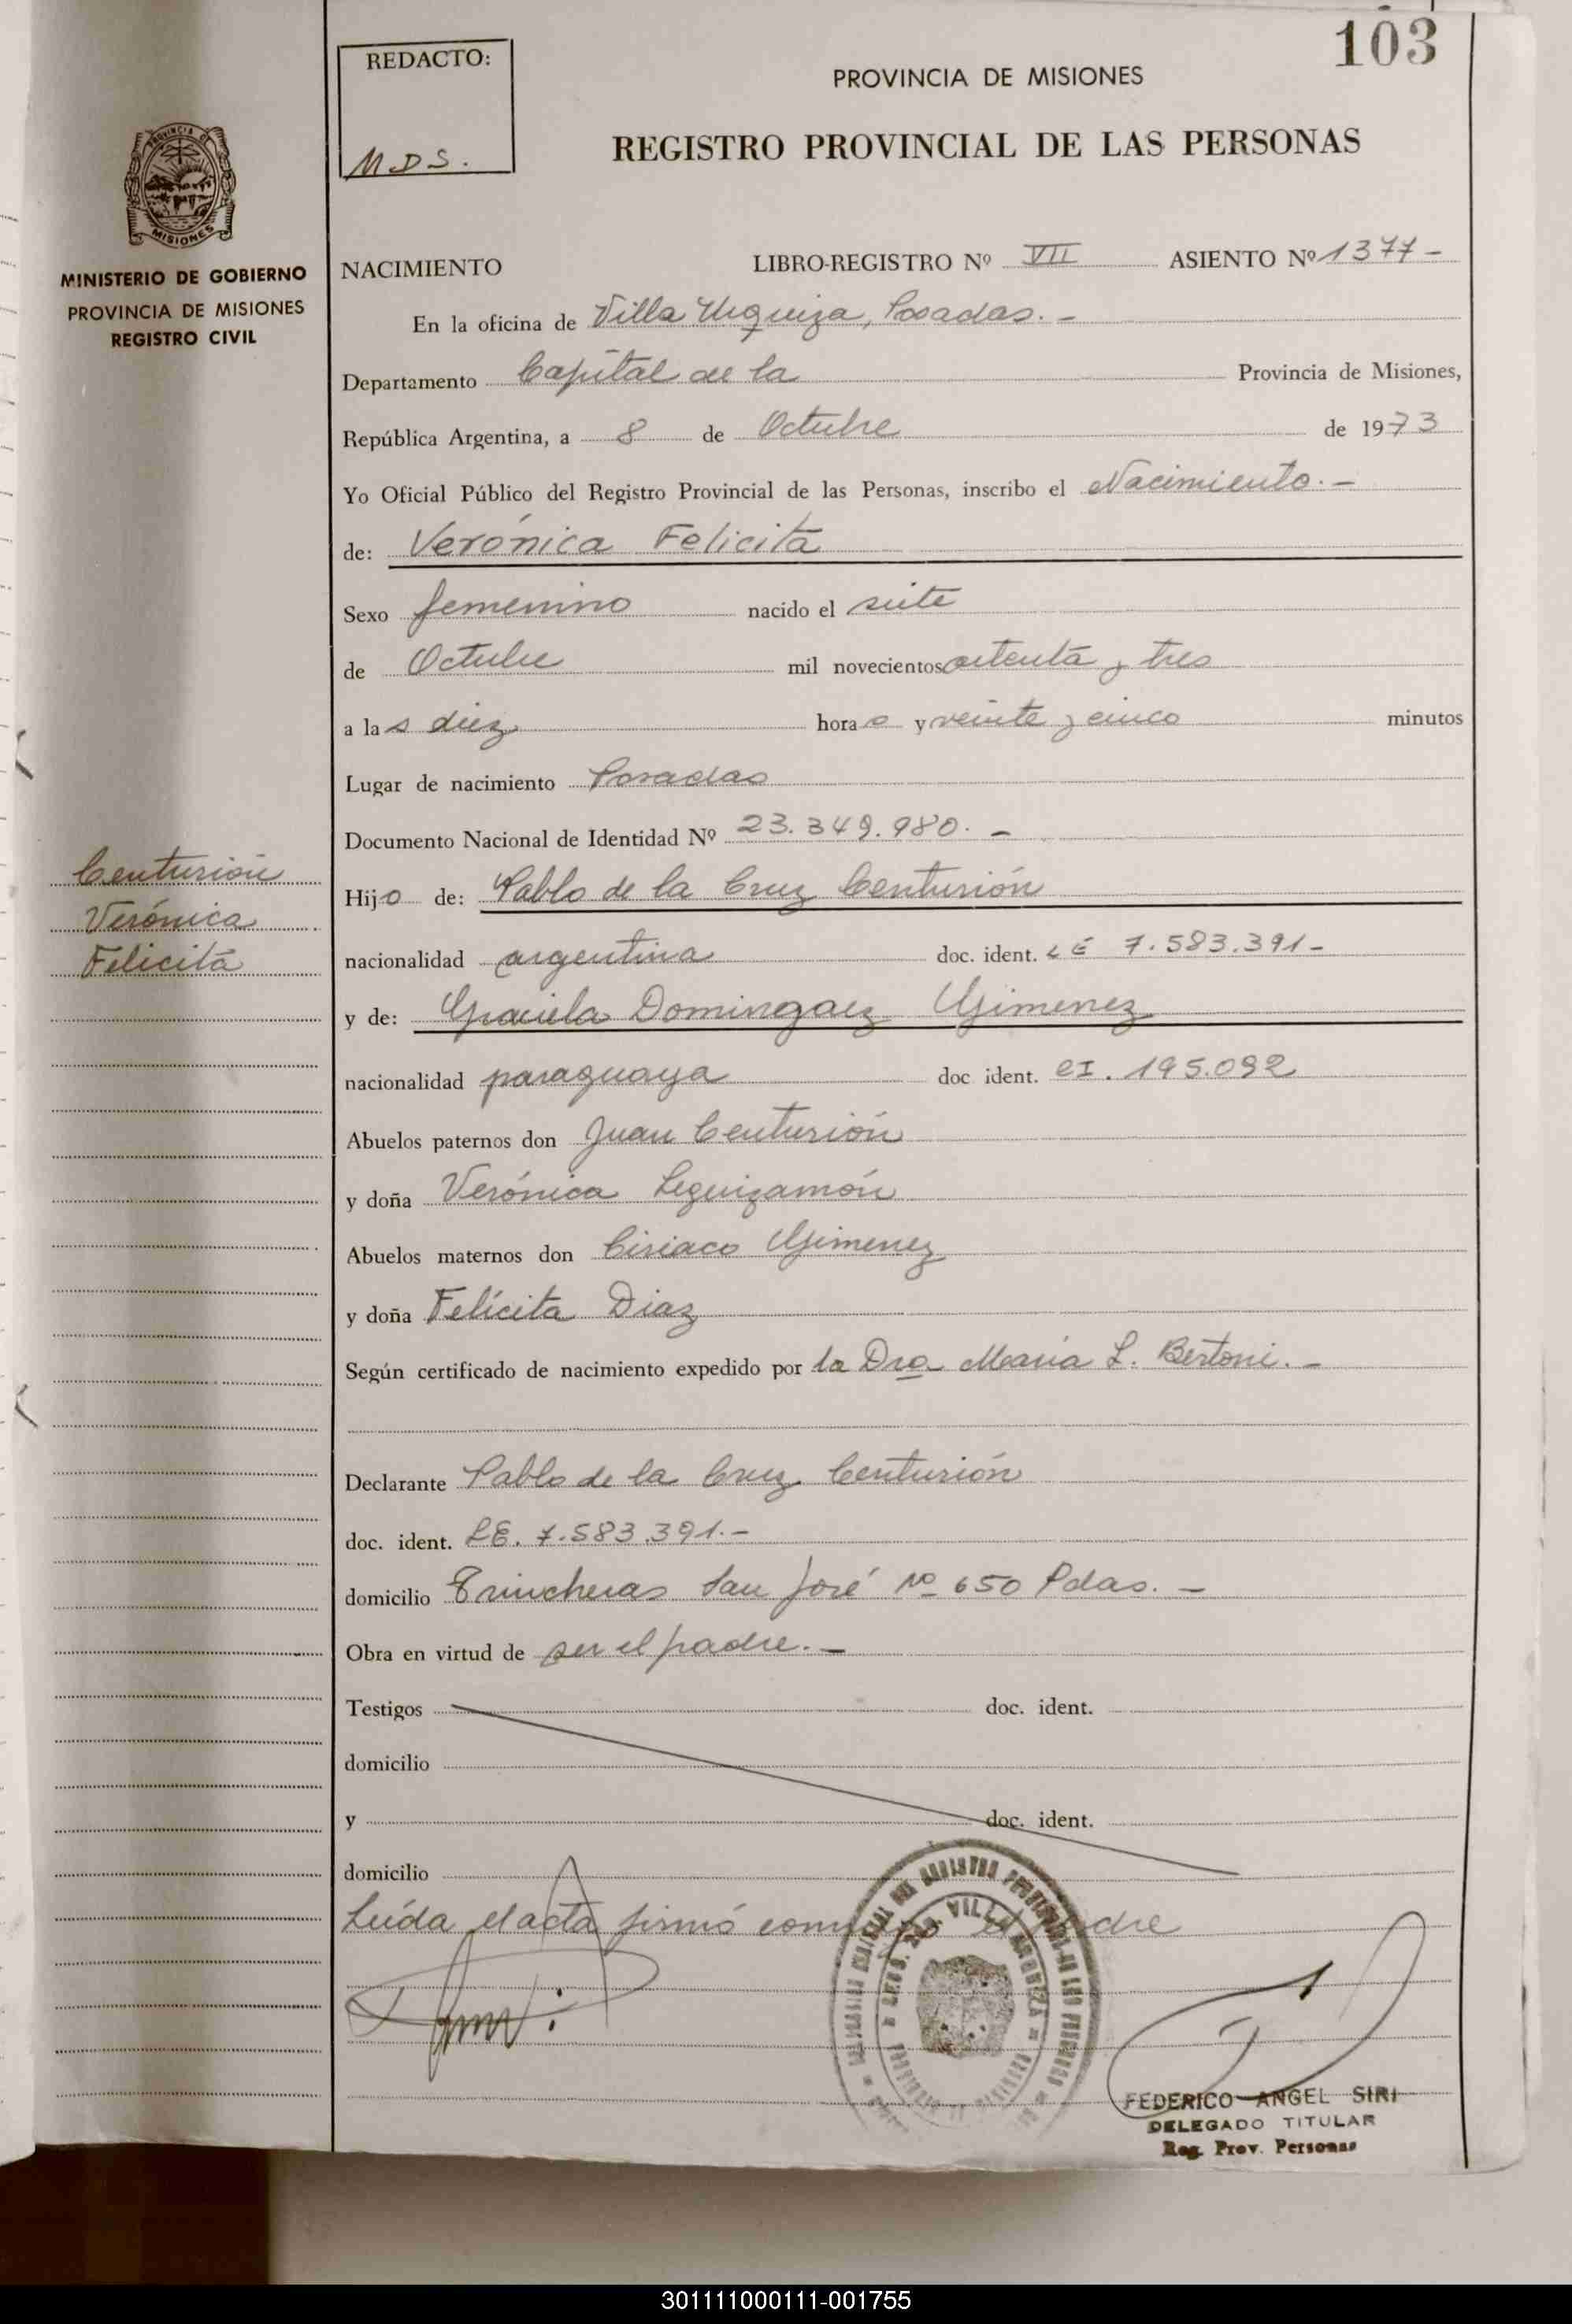 103
REDACTO:
M.D.S.
PROVINCIA DE MISIONES
REGISTRO PROVINCIAL DE LAS PERSONAS
MISIONES
MINISTERIO DE GOBIERNO
PROVINCIA DE MISIONES
REGISTRO CIVIL
NACIMIENTO LIBRO-REGISTRO Nº VII ASIENTO Nº 1377-
En la oficina de Villa Urquiza, Posadas.-
Departamento Capital de la Provincia de Misiones,
República Argentina, a 8 de Octubre de 1973
Yo Oficial Público del Registro Provincial de las Personas, inscribo el Nacimiento.-
de: Verónica Felicitá
Sexo femenino nacido el siete
de Octubre mil novecientos setenta y tres
a las diez horas y veinte y cinco minutos
Lugar de nacimiento Posadas
Documento Nacional de Identidad Nº 23.349.980.-
Centurión
Verónica
Felicitá
Hijo de: Pablo de la Cruz Centurión
nacionalidad argentina doc. ident. LE 7.583.391-
y de: Graciela Dominga Gimenez
nacionalidad paraguaya doc ident. CI. 195.092
Abuelos paternos don Juan Centurión
y doña Verónica Leguizamón
Abuelos maternos don Ciriaco Gimenez
y doña Felícita Diaz
Según certificado de nacimiento expedido por la Dra María L. Bertoni.-
Declarante Pablo de la Cruz Centurión
doc. ident. LE. 7.583.391.-
domicilio Trincheras San José Nº 650 Pdas.-
Obra en virtud de ser el padre.-
Testigos doc. ident.
domicilio
y doc. ident.
domicilio
Leída el acta firmó conmigo el padre
FEDERICO ANGEL SIRI
DELEGADO TITULAR
Reg. Prov. Personas
301111000111-001755